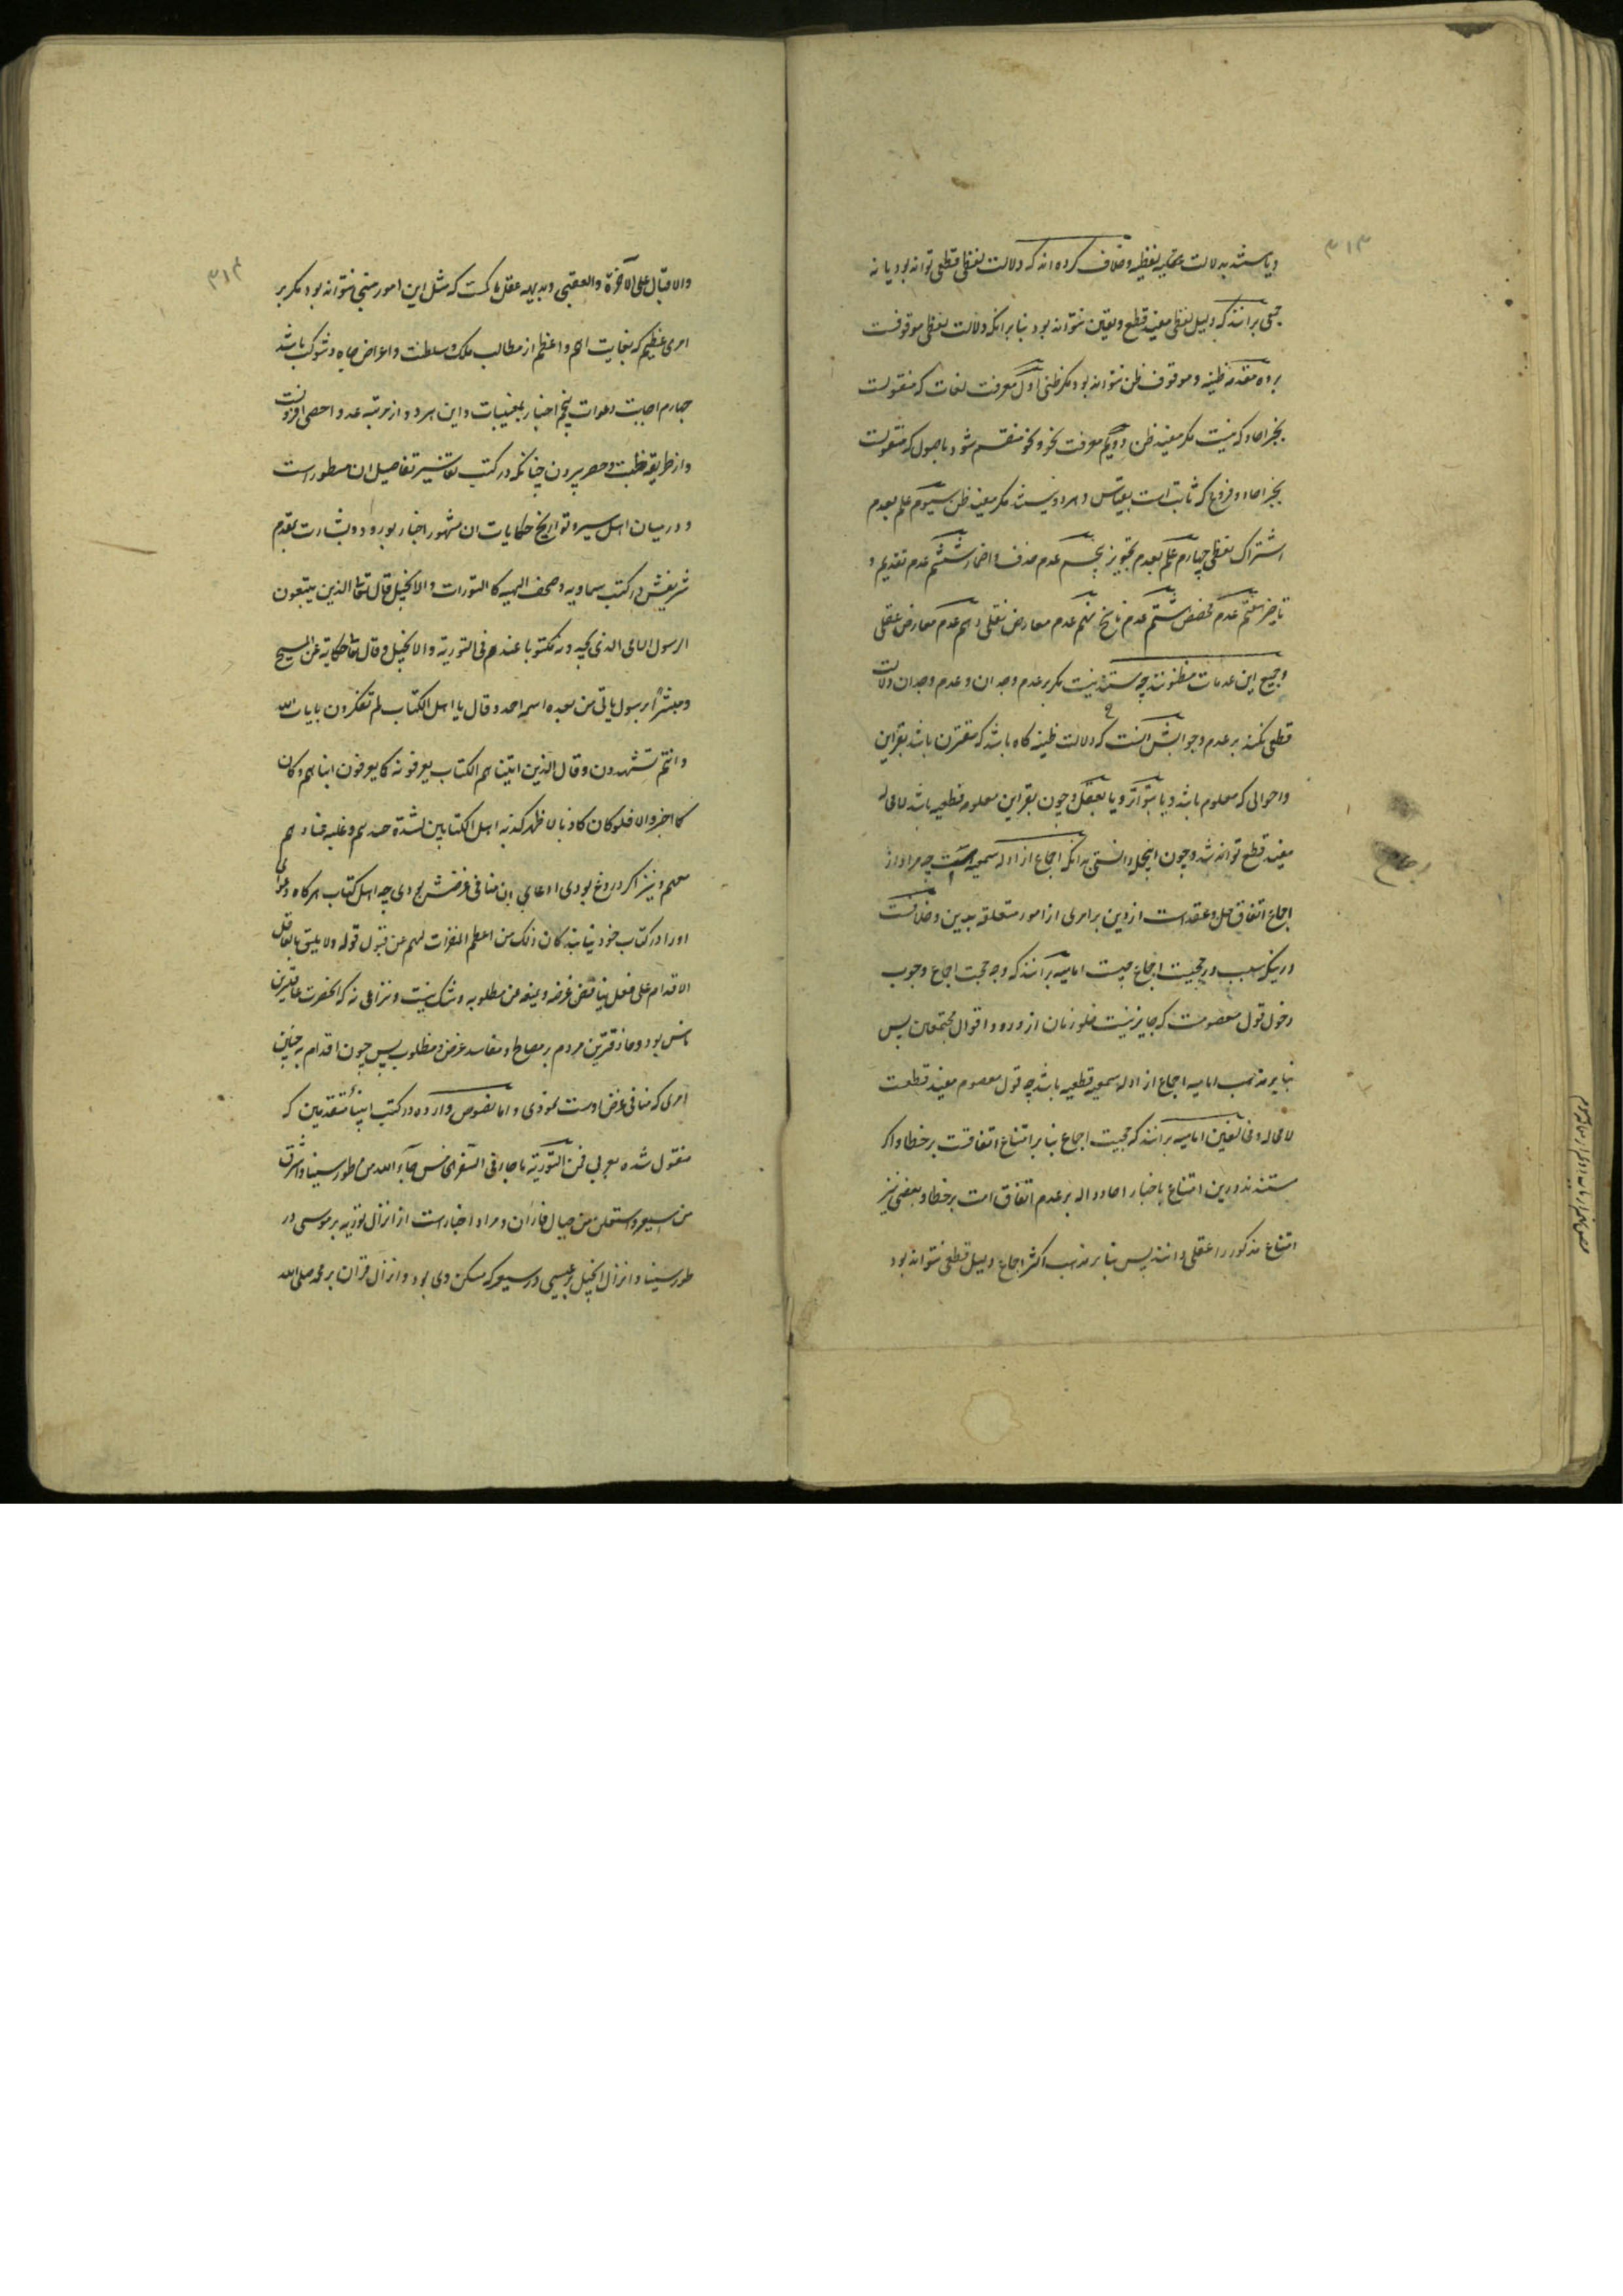 ۳۱۳
و یا مستند بدلالت عقلیه لفظیه و خلاف کرده‌اند که دلالت لفظی قطعی تواند بود یا نه
جمعی برانند که دلیل لفظی مفید قطع و یقین نتواند بود بنابرانکه دلالت لفظی موقوفست
بر ده مقدمه ظنیه و موقوف ظن نتواند بود مگر ظنی اول معرفت لغات که منقولست
بخبر احاد که نیست مگر مفید ظن دویم معرفت نحو و نحو منقسم شود باصول که منقولست
بخبر احاد و فروع که ثابت است بقیاس و هر دو نیست مگر مفید ظن سیوم علم بعدم
اشتراک لفظی چهارم علم بعدم تجویز پنجم عدم حذف و اضمار ششم عدم تقدیم و
تاخیر هفتم عدم مخصص هشتم عدم ناسخ نهم عدم معارض نقلی دهم عدم معارض عقلی
و جمیع این عدمات مظنونند چه مستند نیست مگر بر عدم وجدان و عدم وجدان دلالت
قطعی نکند بر عدم و جوابش آنست که دلالت ظنیه گاه باشد که مقترن باشد بقراین
و احوالی که معلوم باشد یا بتواتر و یا بعقل و چون بقراین معلومه قطعیه باشد لامحاله
مفید قطع تواند شد و چون اینجمله دانستی بدانکه اجماع از ادله سمعیه است چه مراد از
اجماع اتفاق اهل حل و عقد است از دین بر امری از امور متعلقه بدین و خلافست
درینکه سبب در حجیت اجماع چیست امامیه برآنند که وجه حجیت اجماع وجوب
دخول قول معصومست که جایز نیست خلو زمان ازو در اقوال مجتمعین پس
بنابر مذهب امامیه اجماع از ادله سمعیه قطعیه باشد چه قول معصوم مفید قطعست
لامحاله و مخالفین امامیه برآنند که حجیت اجماع بنابر امتناع اتفاقست بر خطا و اکثر
مستندند درین امتناع باخبار احاد داله بر عدم اتفاق امت بر خطا و بعضی نیز
امتناع مذکور را عقلی دانند پس بنابر مذهب اکثر اجماع دلیل قطعی نتواند بود
۳۱۴
والاقبال علی الآخرة والعقبی و بدیهه عقل حاکمست که مثل این امور مبنی نتواند بود مگر بر
امری عظیم که بغایت اهم و اعظم از مطالب ملک و سلطنت و اعراض جاه و شوکت باشد
چهارم اجابت دعوات پنجم اخبار بمغیبات و این هر دو از مرتبه عد و احصی افزونست
و از طریقه ضبط و حصر بیرون چنانکه در کتب تفاسیر تفاصیل ان مسطور است
و در میان اهل سیر و تواریخ حکایات ان مشهور اخبار بورود و بشارت بمقدم
شریفش در کتب سماویه و صحف الهیه کالتورات والانجیل قال تعالی الذین یتبعون
الرسول النبی الامی الذی یجدونه مکتوبا عندهم فی التوریة والانجیل و قال تعالی حکایة عن المسیح
و مبشرا برسول یاتی من بعده اسمه احمد و قال یا اهل الکتاب لم تکفرون بایات الله
و انتم تشهدون و قال الذین اتیناهم الکتاب یعرفونه کما یعرفون ابناءهم و کان
کما اخبر والا فلو کان کاذبا لاظهر کذبه اهل الکتابین لشدة حسدهم و غلبه عنادهم
معهم و نیز اگر دروغ بودی ادعای این منافی غرضش بودی چه اهل کتاب هرگاه دعوای
او را در کتاب خود نیابند کان ذلک من اعظم المنفرات لهم عن قبول قوله ولا یلیق بالعاقل
الاقدام علی فعل یناقض غرضه و یمنعه من مطلوبه و شک نیست و نزاعی نه که آنحضرت عاقلترین
ناس بود و حاذقترین مردم بر مصالح و مفاسد غرض و مطلوب پس چون اقدام بر چنین
امری که منافی غرض اوست نمودی و اما نصوص وارده در کتب انبیاء متقدمین که
منقول شده بعربی فمن التوریة ما جاء فی السفر الخامس جاء الله من طور سینا و اشرق
من سیعیر و استعلن من جبال فاران و مراد اخبار است از انزال توریه بر موسی در
طور سینا و انزال انجیل بر عیسی در سیعیر که مسکن وی بود و انزال قران بر محمد صلی الله